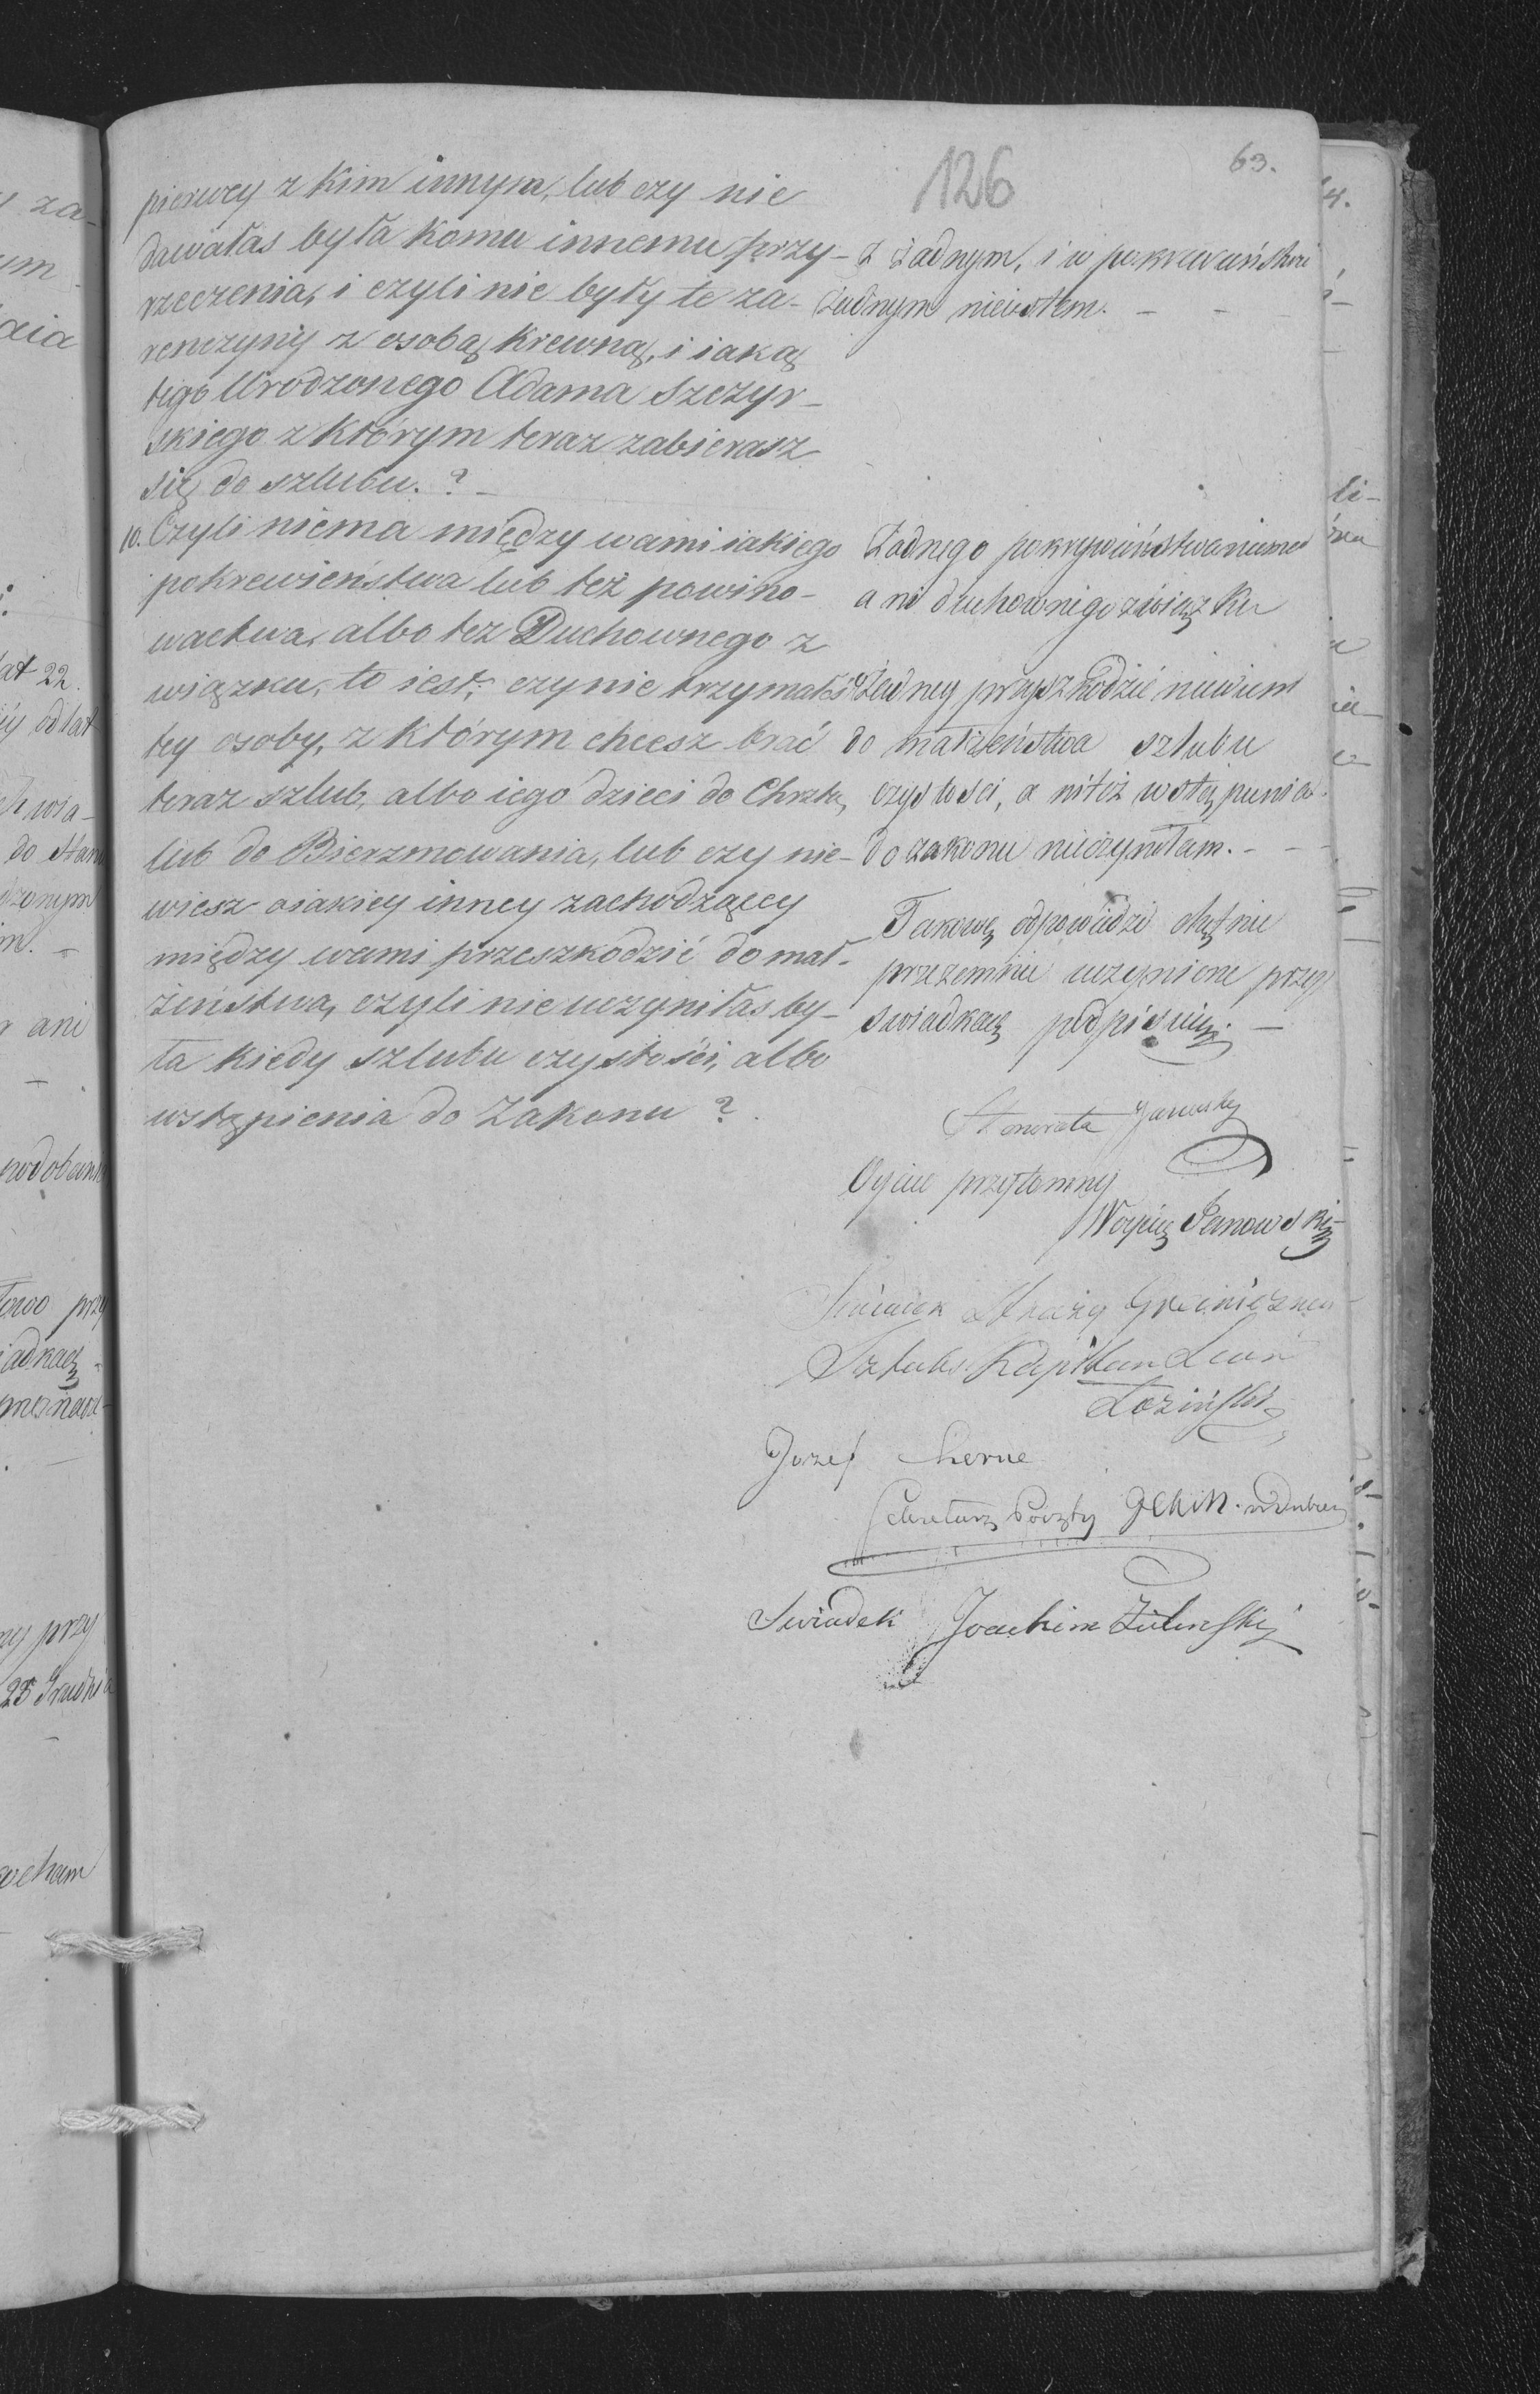 126
63.
pierwey z kim innym, lub czy nie
dawałas była komu innemu przy-
rzeczenia, i czyli nie były te za-
renczyny z osobą krewną, i iaką
tego Urodzonego Adama Szczyr-
skiego z którym teraz zabierasz
się do szlubu. ? -
10. Czyli niema między wami iakiego
pokrewieństwa lub też powino-
wactwa, albo tez Duchownego z
wiązku, to iest: czy nie trzymałaś
tey osoby, z którym chcesz brać
teraz szlub, albo iego dzieci do Chrztu,
lub do Bierzmowania, lub czy nie-
wiesz oiakiey inney zachodzącey
między wami przeszkodzić do mał-
żeństwa, czyli nie uczyniłas by-
ła kiedy szlubu czystości, albo
wstąpienia do Zakonu ?
z żadnym, i w
żadnym nieiestem. -
Żadnego pokrywiństwa niema
ani duchownego związku
Żadney przyszkodzić niewiem
do małżeństwa szlubu
czystosci, a niteż wstąpunia
do zakonu nieczyniłam. - - -
Takowe odpowiedzi chętnie
przezemnie uczynione przy
swiadkach podpisuię. -
Honorata
Oyciec przytomny
Woyciech Janowski
Swiadek Straży Graniczney
Sztabs Kapitan Leon
Łoziński
Jozef
Sekretarz Poczty
Swiadek Joachim Zielinski